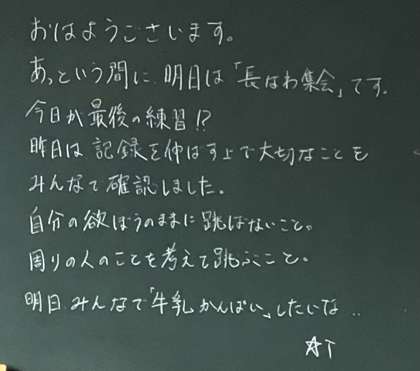 おはようございます。
あっという間に明日は「長なわ集会」です。
今日が最後の練習!?
昨日は記録を伸ばす上で大切なことも
みんなで確認しました。
自分の欲ぼうのままに跳ばないこと。
周りの人のことを考えて跳ぶこと。
明日みんなで「牛乳かんぱい」したいな..
☆T